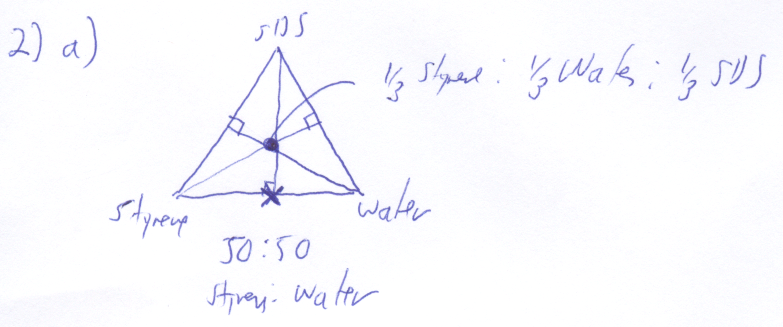 2) a)
SDS
1/3 Styrene : 1/3 Water : 1/3 SDS
Styrene
Water
50:50
Styrene: Water